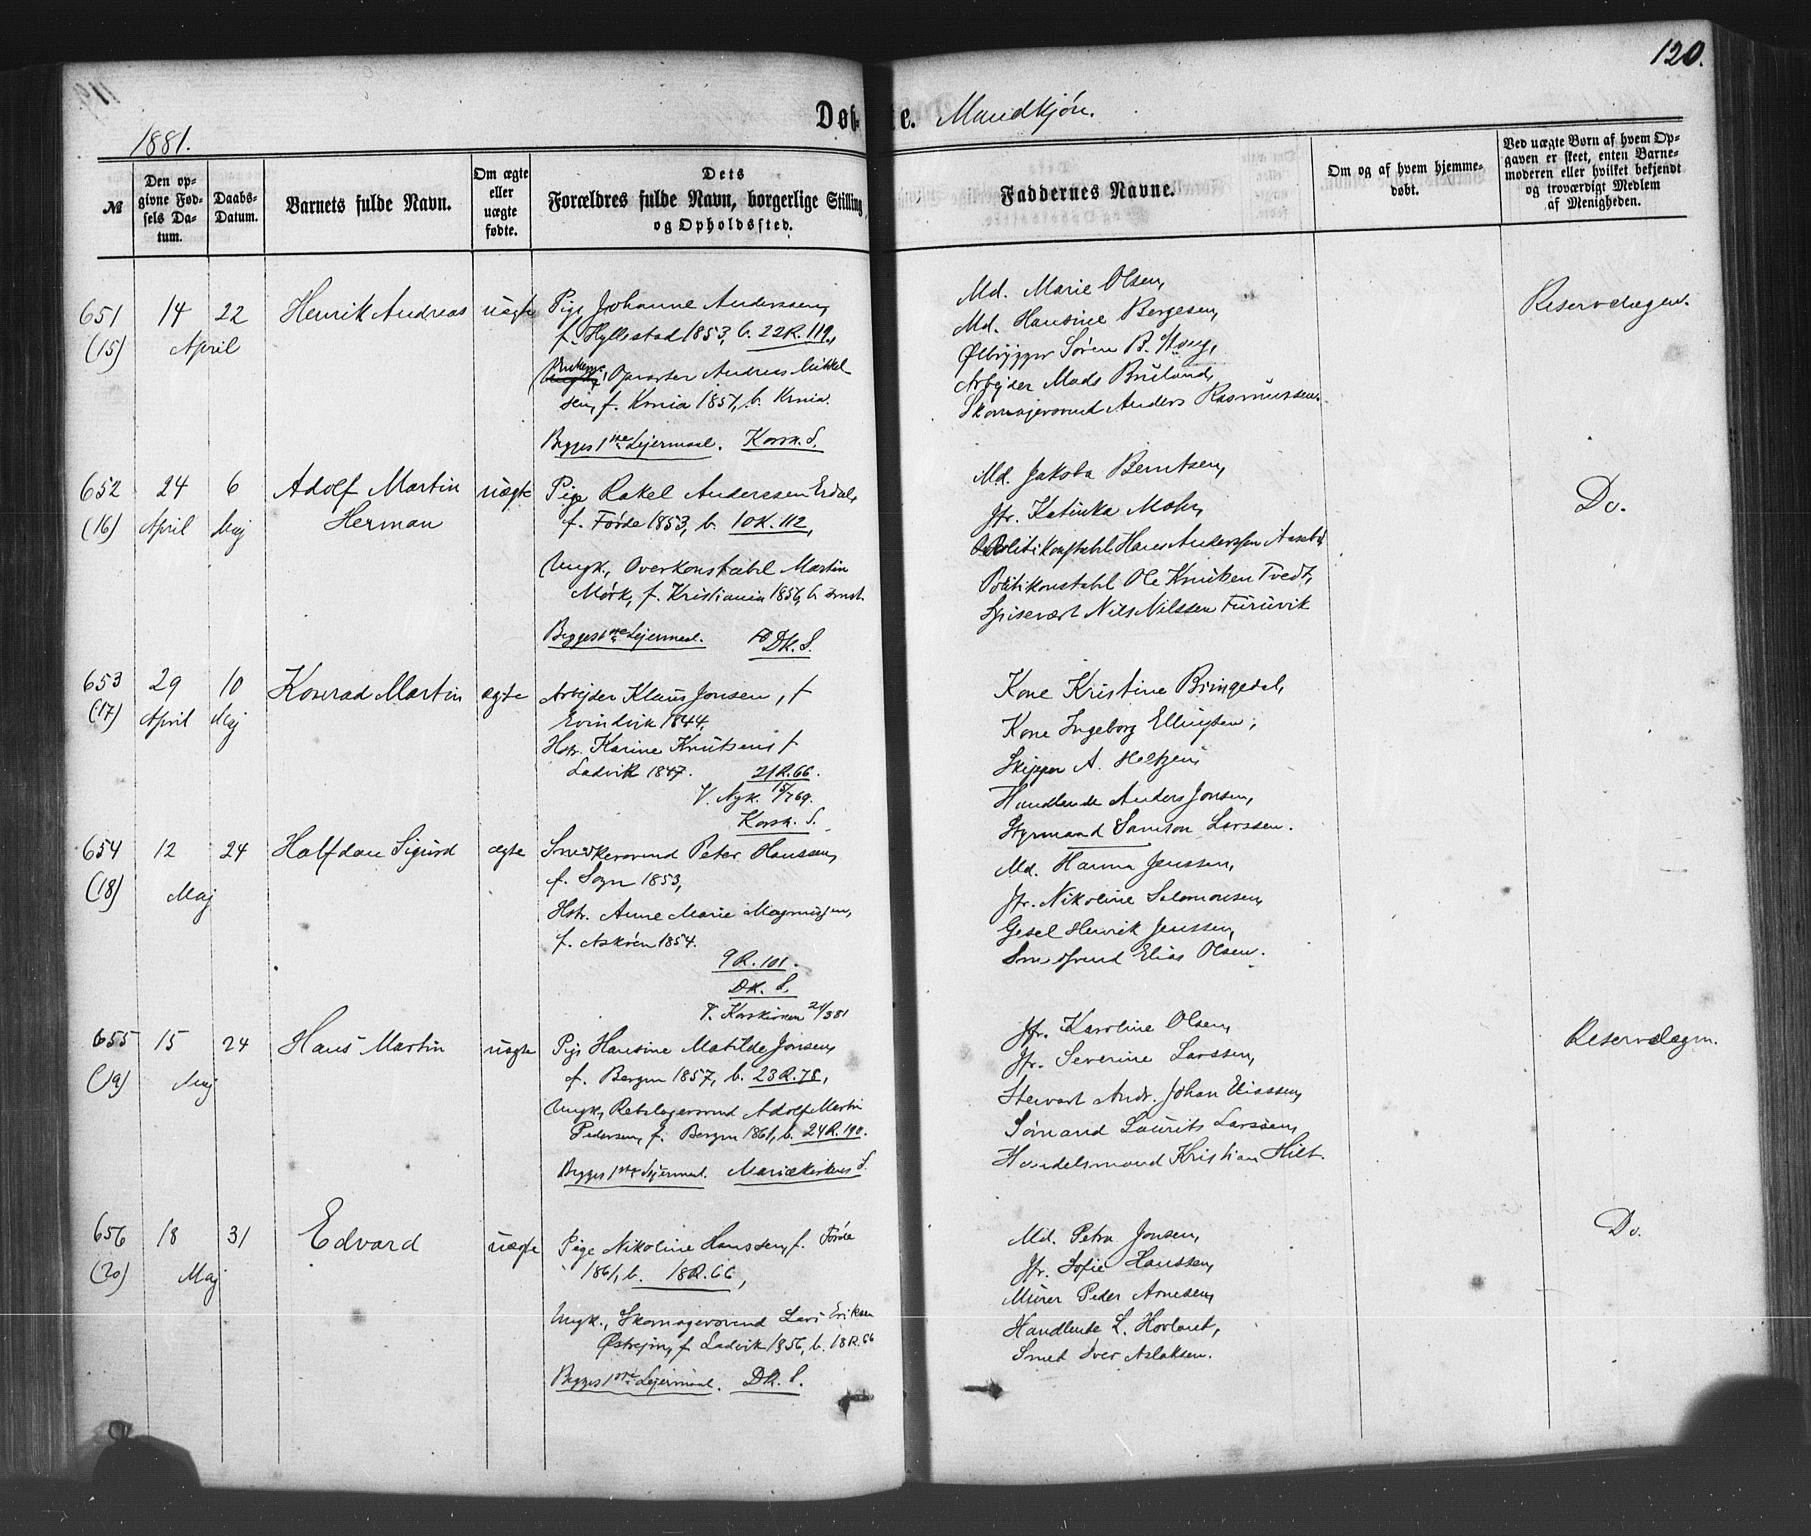 120.
Døbte. Mandkjön.
1881.
№
Den opgivne Fødsels Datum.
Daabs-Datum.
Barnets fulde Navn.
Om ægte eller uægte fødte.
Dets Forældres fulde Navn, borgerlige Stilling og Opholdssted.
Faddernes Navne.
Om og af hvem hjemmedøbt.
Ved uægte Børn af hvem Opgaven er skeet, enten Barnemoderen eller hvilket bekjendt og troværdigt Medlem af Menigheden.
651 14 22 Henrik Andreas uægte
(15) April
Pige Johanne Anderssen,
f. Hyllestad 1853, b. 22R.119,
Opvarter Andreas Mikkelsen, f. Krnia 1857, b. Krnia.
Begges 1ste Lejermaal. Korsk. S.
Md. Marie Olsen,
Md. Hansine Bergesen,
Ølbrygger Søren B.
Arbejder Mads Bruland,
Skomagersvend Anders Rasmussen.
Reservelægen.
652 24 6 Adolf Martin uægte
(16) April Maj Herman
Pige Rakel Anderssen Erdal,
f. Førde 1853, b. 10R.112,
Ungk., Overkonstabel Martin
Mørk, f. Kristiania 1856, b. smst.
Begges 1ste Lejermaal. DK. S.
Md. Jakoba Berntsen,
Jfr. Katinka Mohr,
Politikonstabl Hans Anderssen
Politikonstabl Ole Knutsen Tvedt,
Spisevært Nils Nilssen Furuvik
Do.
653 29 10 Konrad Martin ægte
(17) April Maj
Arbejder Klaus Jonsen, f.
Evindvik 1844,
Hstr. Karine Knutsen, f.
Ladvik 1847. 21R.66.
V. Nyk. 15/769.
Korsk. S.
Kone Kristine Bringedal,
Kone Ingeborg Ellingsen,
Skipper A. Heltzen,
Handlende Anders Jonsen,
Styrmand Samson Larssen.
654 12 24 Halfdan Sigurd ægte
(18) Maj
Smedkersvend Peter Hanssen,
f. Sogn 1853,
Hstr. Anne Marie Magnussen,
f. Askøen 1854.
9R.101.
DK. S.
V. Korskirken 21/381
Md. Hanna Jenssen,
Jfr. Nikoline Salomonsen,
Gesel Henrik Jenssen,
Smedsvend Elias Olsen.
655 15 24 Hans Martin uægte
(19) Maj
Pige Hansine Matilde Jonsen,
f. Bergen 1857, b. 23R.78,
Ungk., Rebslagersvend Adolf Martin
Pedersen, f. Bergen 1861, b. 24R.190.
Begges 1ste Lejermaal. Mariækirkens S.
Jfr. Karoline Olsen,
Jfr. Severine Larssen,
Stewart Andr. Johan Eliassen,
Sømand Laurits Larssen,
Handelsmand Kristian Hilt.
Reservelægen.
656 18 31 Edvard uægte
(20) Maj
Pige Nikoline Hanssen, f. Førde
1861, b. 18R.66,
Ungk., Skomagersvend Lars Eriksen
Østrejm, f. Ladvik 1856, b. 18R.66
Begges 1ste Lejermaal. DK. S.
Md. Petra Jonsen,
Jfr. Sofie Hanssen,
Murer Peder Arnesen,
Handlende L. Hovland,
Smed Iver Aslaksen.
Do.